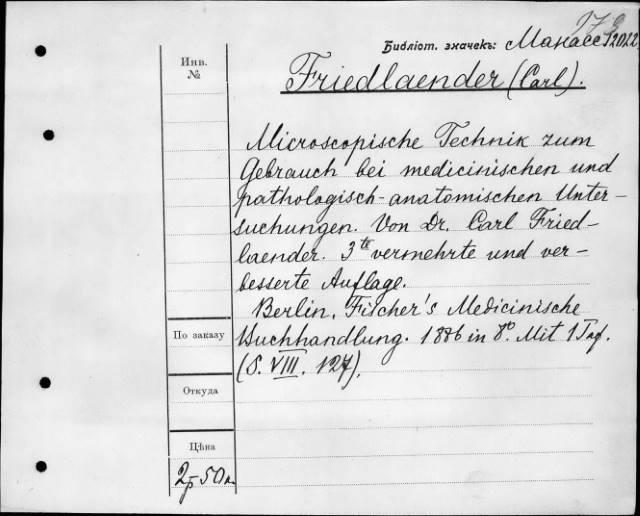 Библіот. значекъ: Манасс 12022
Инв.
№
Friedlaender (Carl).
Microscopische Technik zum
Gebrauch bei medicinischen und
pathologisch-anatomischen Unter-
suchungen. Von Dr. Carl Fried-
laender. 3te vermehrte und ver-
besserte Auflage.
Berlin, Fischer's Medicinische
Buchhandlung. 1886 in 8º. Mit 1 Taf.
(S. VIII. 127).
По заказу
Откуда
Цѣна
2р 50к.